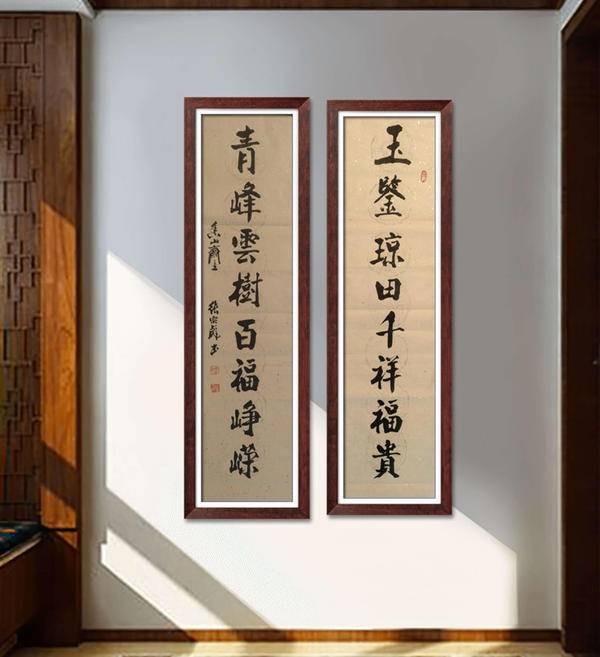 玉鑒瓊田千祥福貴
青峰雲樹百福崢嶸